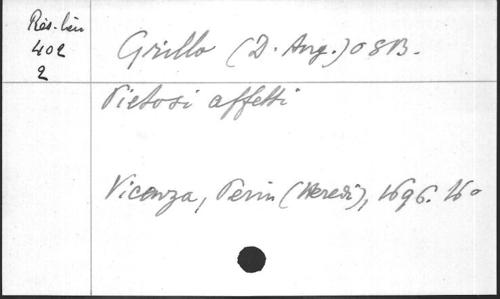 Res. Lin
402
2
Grillo (D. Ang.) OSB.
Pietosi affetti
Vicenza, Perin (Heredi), 1696. 16°